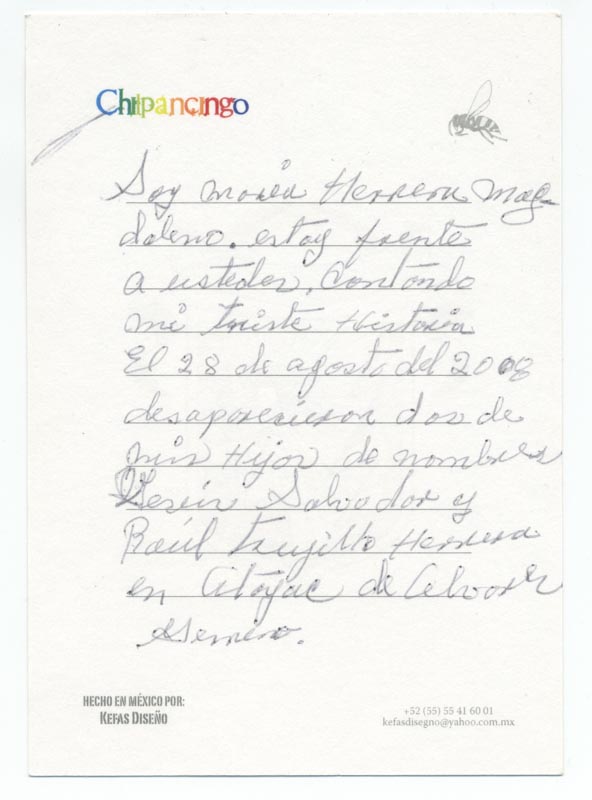 Chilpancingo
Soy maria Herrera Mag-
daleno. estoy frente
a ustedes, contando
mi triste Historia
El 28 de agosto del 2008
desaparecieron dos de
mis Hijos de nombres
Salvador y
Raúl Trujillo Herrera
en Atoyac de Alvarez
Guerrero.
HECHO EN MÉXICO POR:
KEFAS DISEÑO
+52 (55) 55 41 60 01
kefasdisegno@yahoo.com.mx